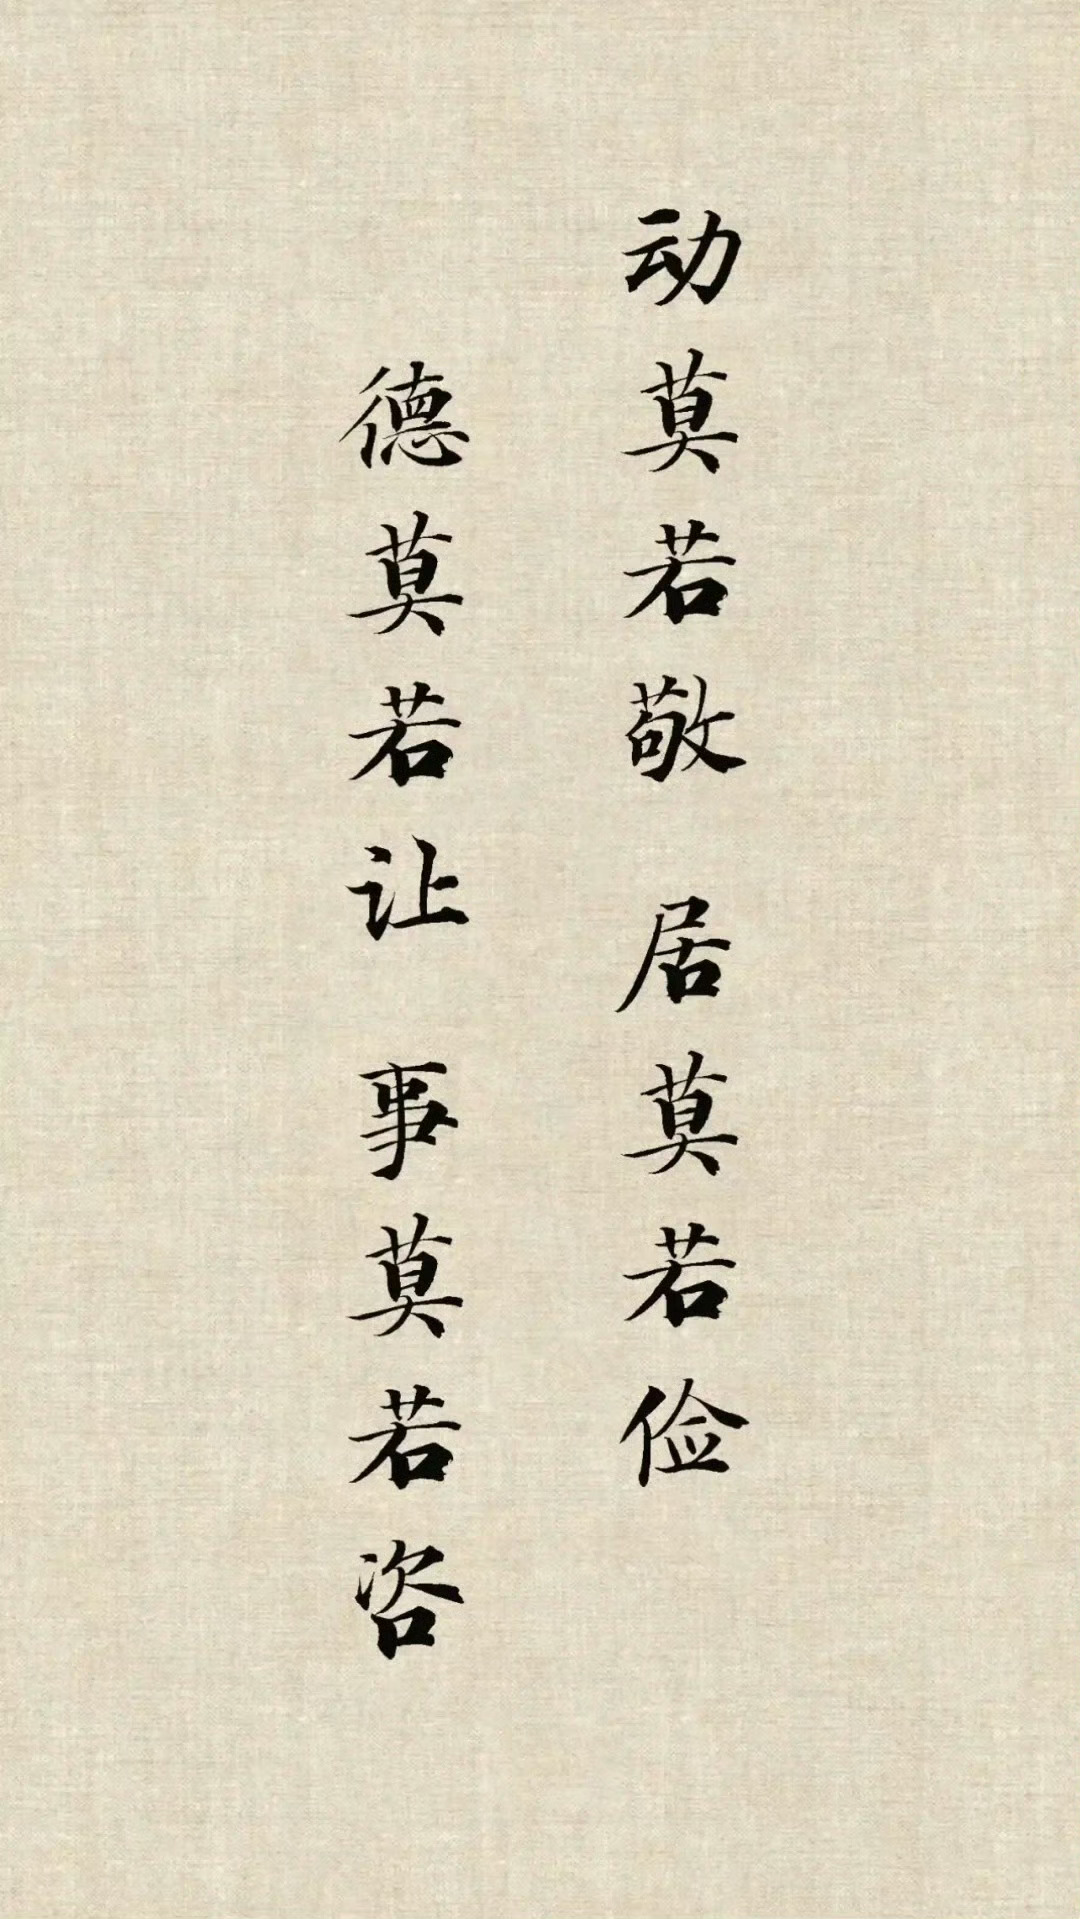 动莫若敬 居莫若俭
德莫若让 事莫若咨